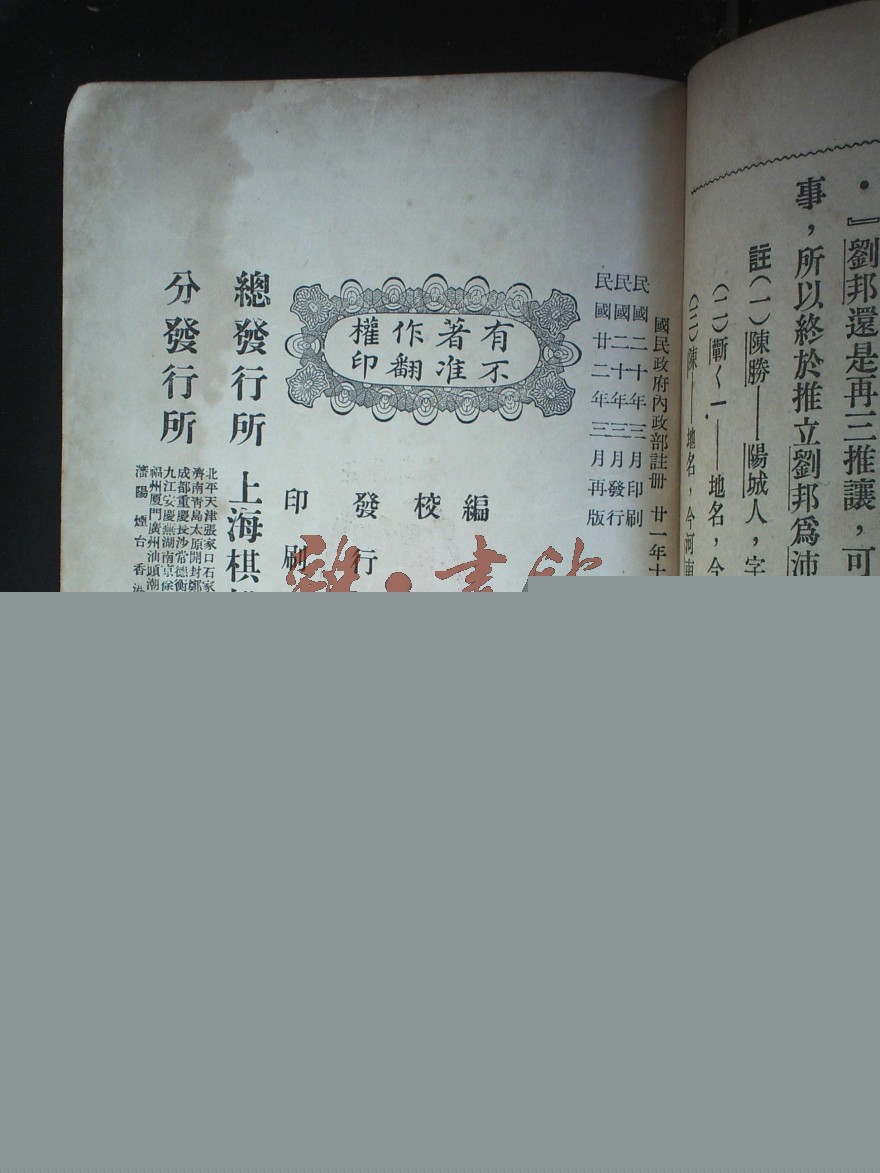 ・』劉邦還是再三推讓，可
事，所以終於推立劉邦爲沛
註（一）陳勝——陽城人，字
（二）蘄ㄑㄧ——地名，今
（三）陳——地名，今河南
國民政府內政部註册 廿一年十
民國二十年三月印刷
民國二十年三月發行
民國廿二年三月再版
有著作權
不准翻印
編
校
發行
印刷
總發行所 上海棋
分發行所
北平天津張家口石家
濟南青島太原開封鄭
成都重慶長沙常德衡
九江安慶蕪湖南京徐
福州厦門廣州汕頭潮
瀋陽 煙台 香港